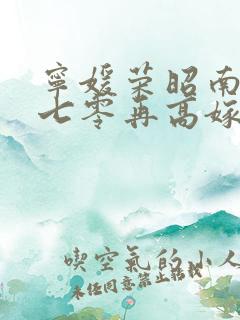 寧媛荣昭南
七零再高嫁
喫空氣的小人
未任同意禁止转载